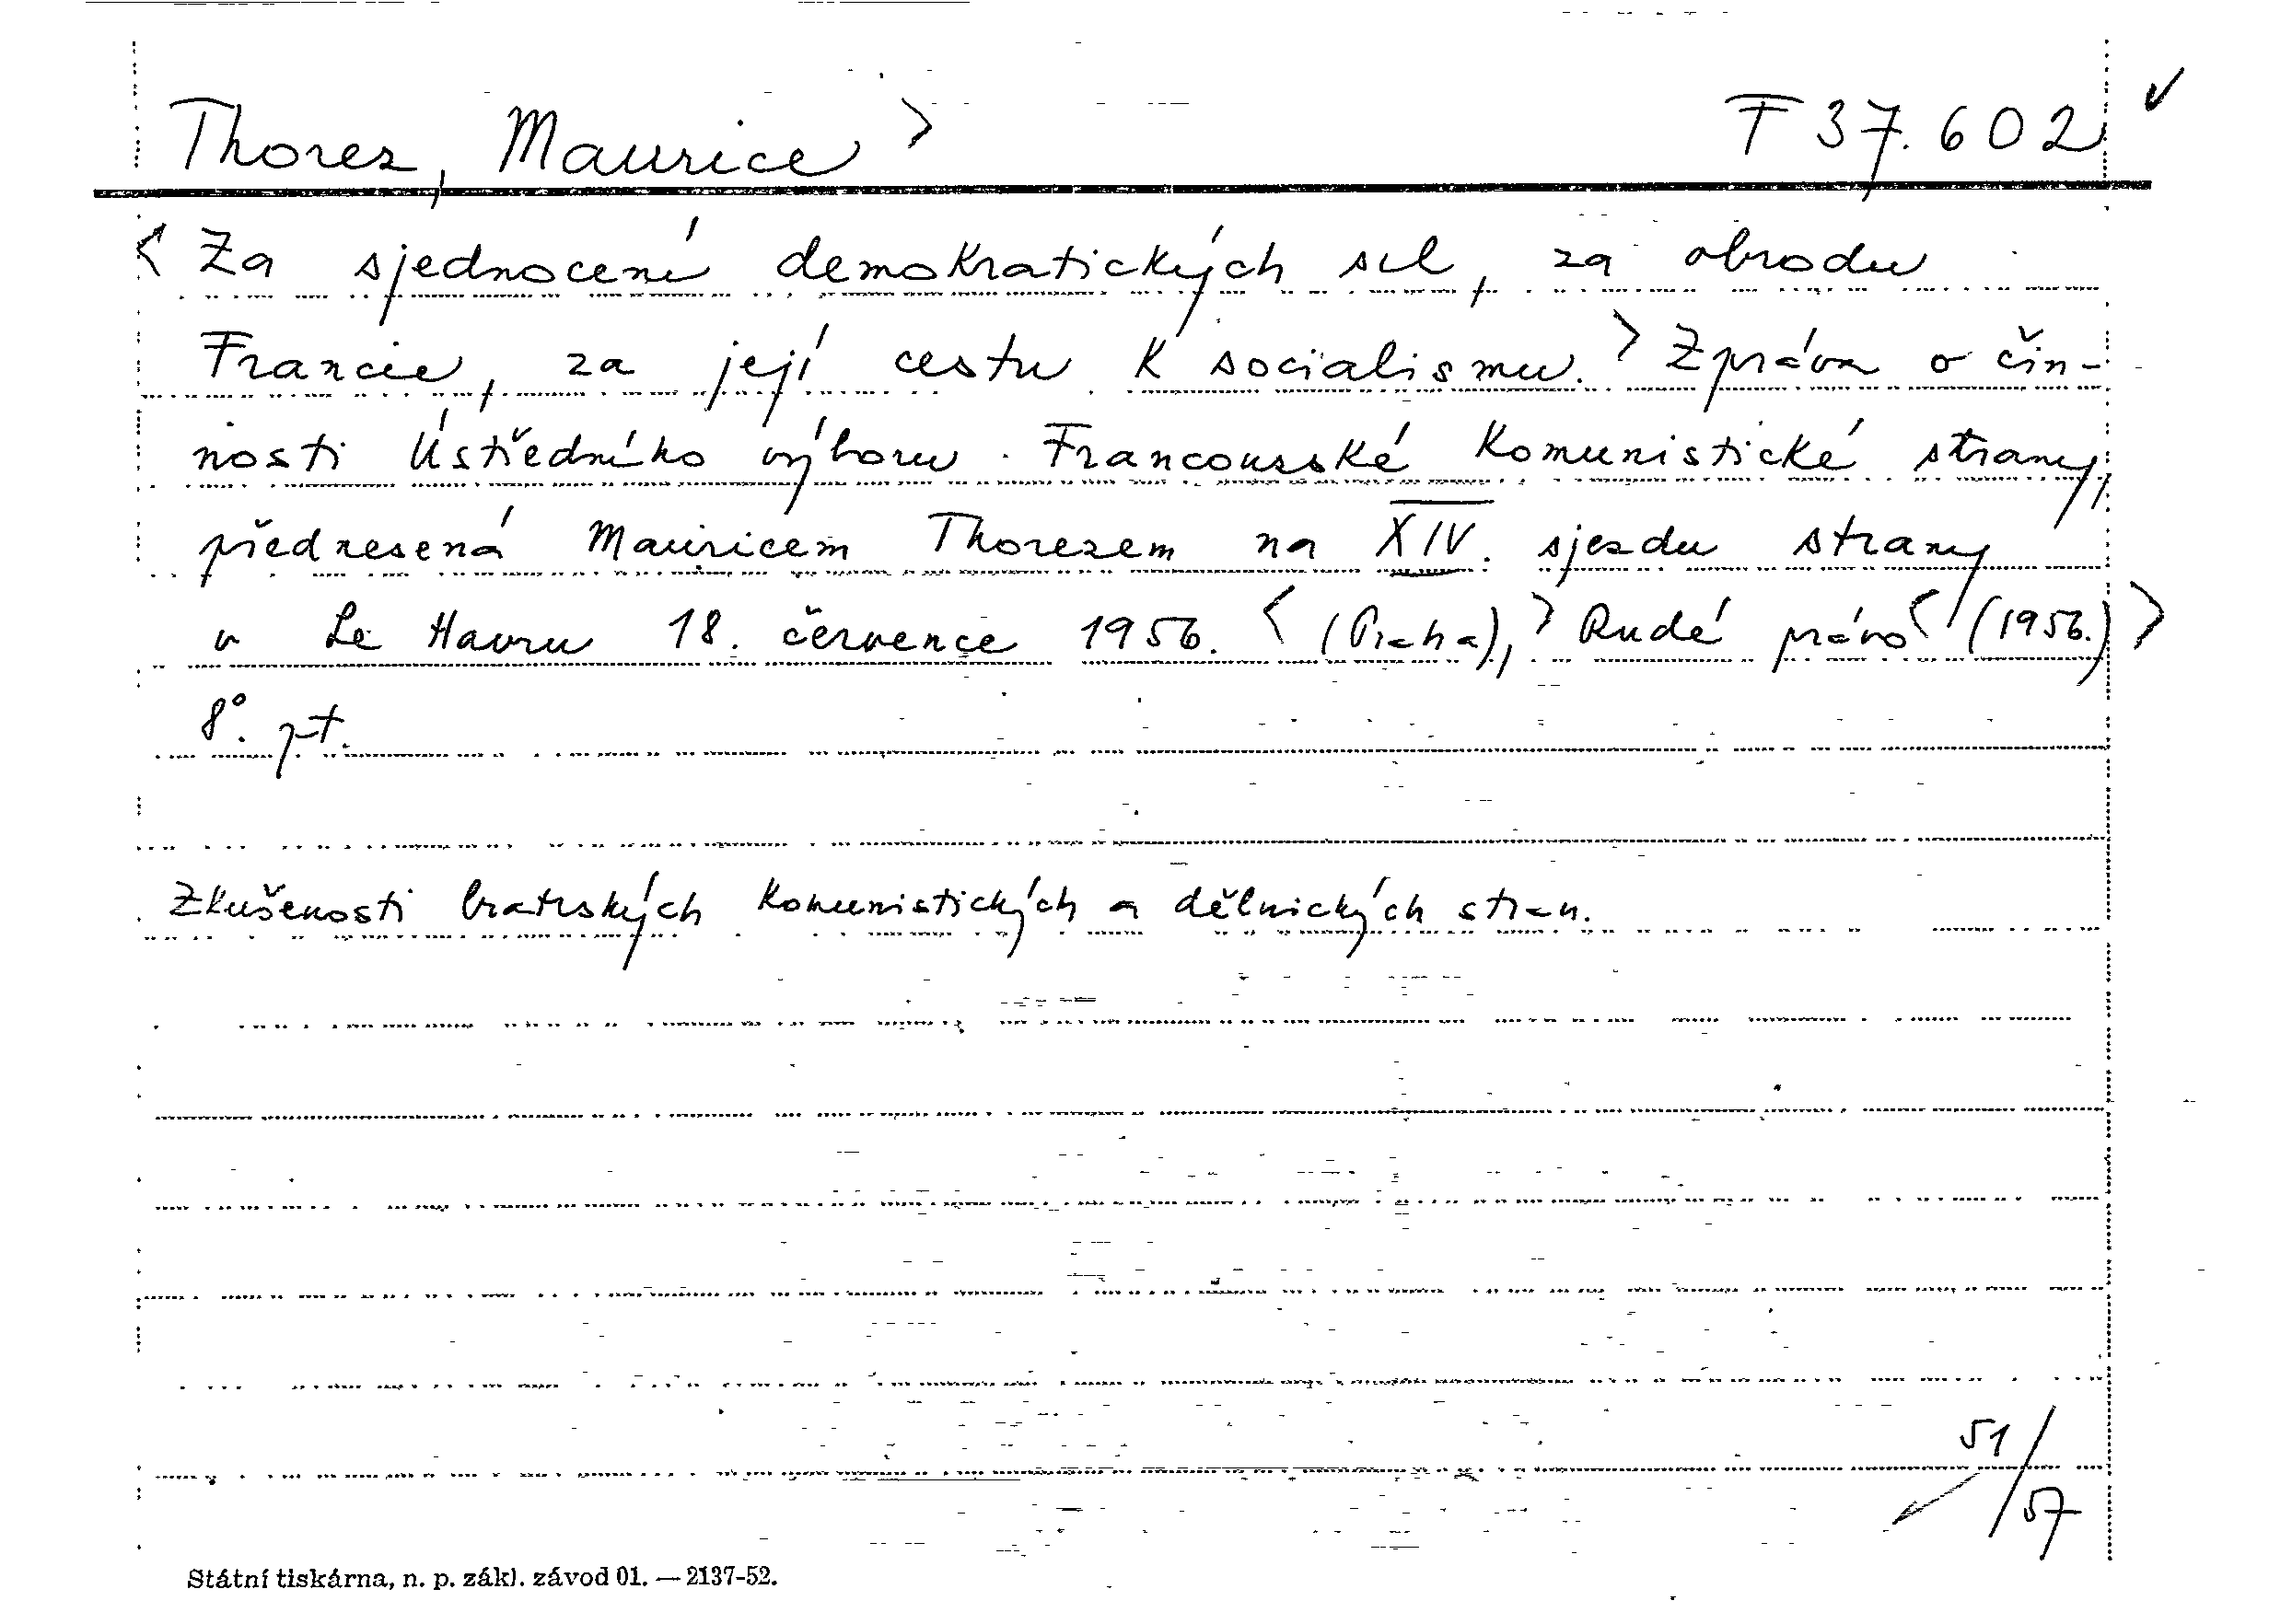 Thorez, Maurice > T 37.602 ✓
< Za sjednocení demokratických sil, za obrodu
Francie, za její cestu k socialismu. > Zpráva o čin-
nosti Ústředního výboru Francouzské Komunistické strany,
přednesená Mauricem Thorezem na XIV. sjezdu strany
v Le Havru 18. července 1956. < (Praha), > Rudé právo < (1956.) >
8°. pt.
Zkušenosti bratrských komunistických a dělnických stran.
51/57
Státní tiskárna, n. p. zákl. závod 01. — 2137-52.